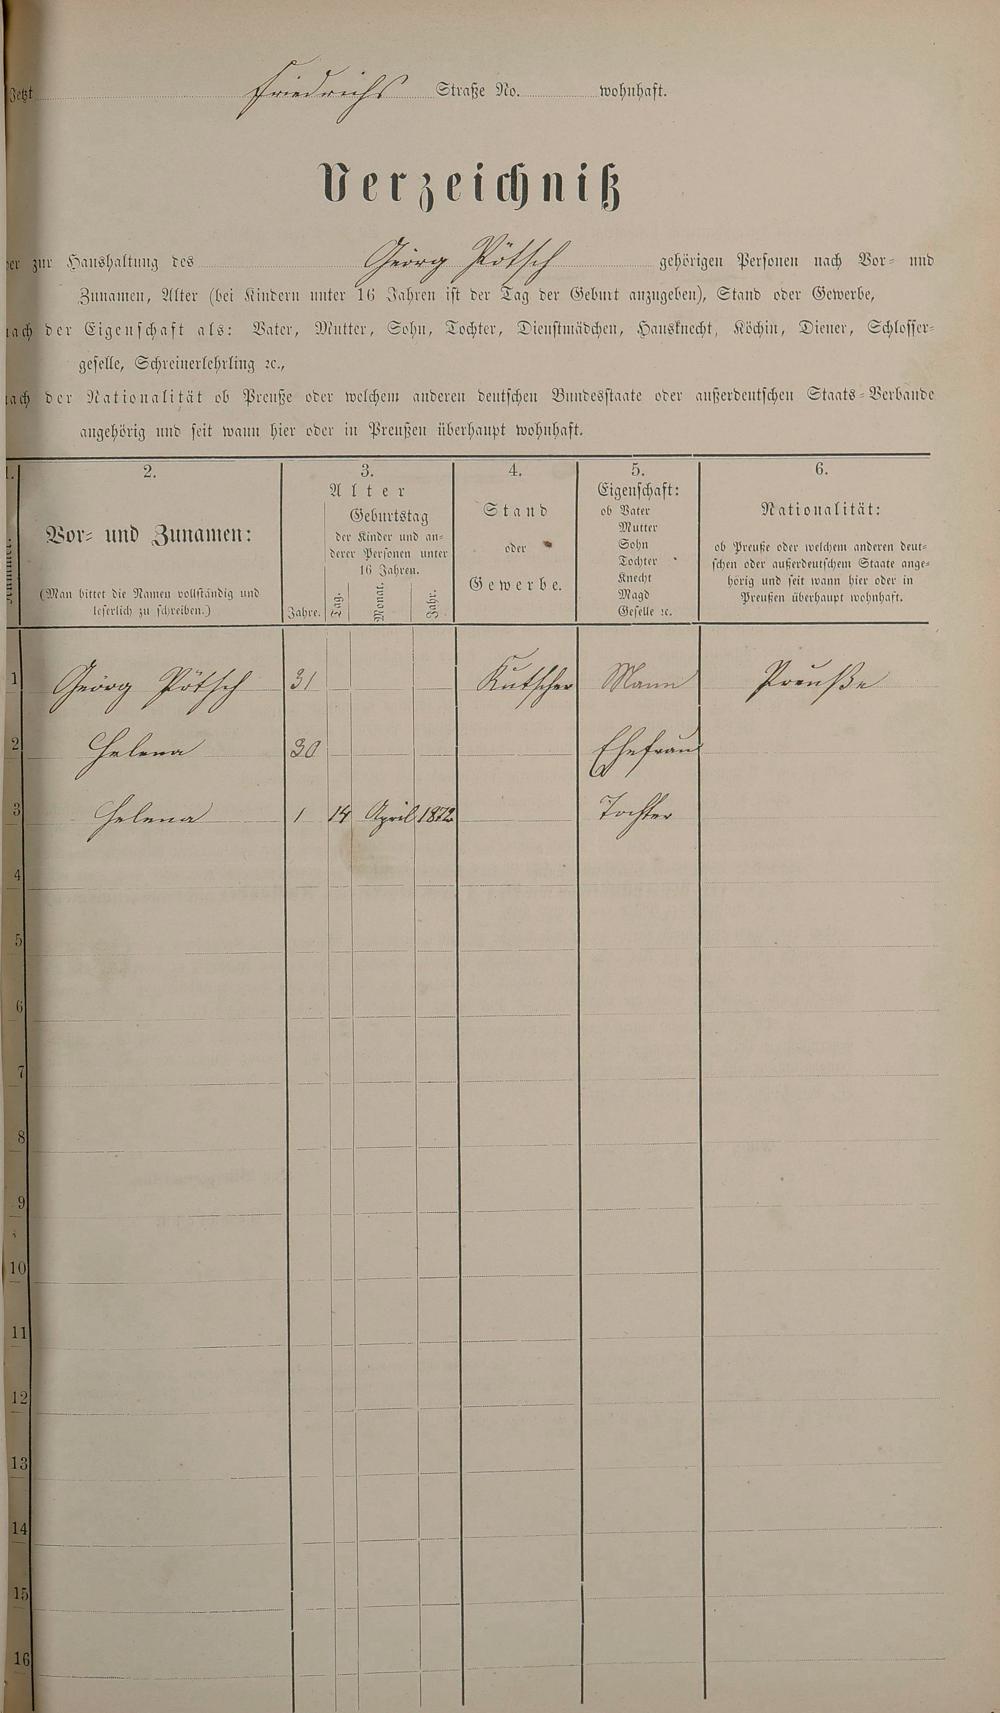 Jetzt Friedrichs Straße No. wohnhaft.
Verzeichniß
der zur Haushaltung des Georg Pötsch gehörigen Personen nach Vor- und
Zunamen, Alter (bei Kindern unter 16 Jahren ist der Tag der Geburt anzugeben), Stand oder Gewerbe,
nach der Eigenschaft als: Vater, Mutter, Sohn, Tochter, Dienstmädchen, Hausknecht, Köchin, Diener, Schlosser-
geselle, Schreinerlehrling ꝛc.,
nach der Nationalität ob Preuße oder welchem anderen deutschen Bundesstaate oder außerdeutschen Staats-Verbande
angehörig und seit wann hier oder in Preußen überhaupt wohnhaft.
1.
Nummer.
2.
Vor- und Zunamen:
(Man bittet die Namen vollständig und
leserlich zu schreiben.)
3.
Alter
Jahre.
Geburtstag
der Kinder und an-
derer Personen unter
16 Jahren.
Tag.
Monat.
Jahr.
4.
Stand
oder
Gewerbe.
5.
Eigenschaft:
ob Vater
Mutter
Sohn
Tochter
Knecht
Magd
Geselle ꝛc.
6.
Nationalität:
ob Preuße oder welchem anderen deut-
schen oder außerdeutschem Staate ange-
hörig und seit wann hier oder in
Preußen überhaupt wohnhaft.
1 Georg Pötsch 31 Kutscher Mann Preuße
2 Helena 30 Ehefrau
3 Helena 1 14 April 1872 Tochter
4
5
6
7
8
9
10
11
12
13
14
15
16